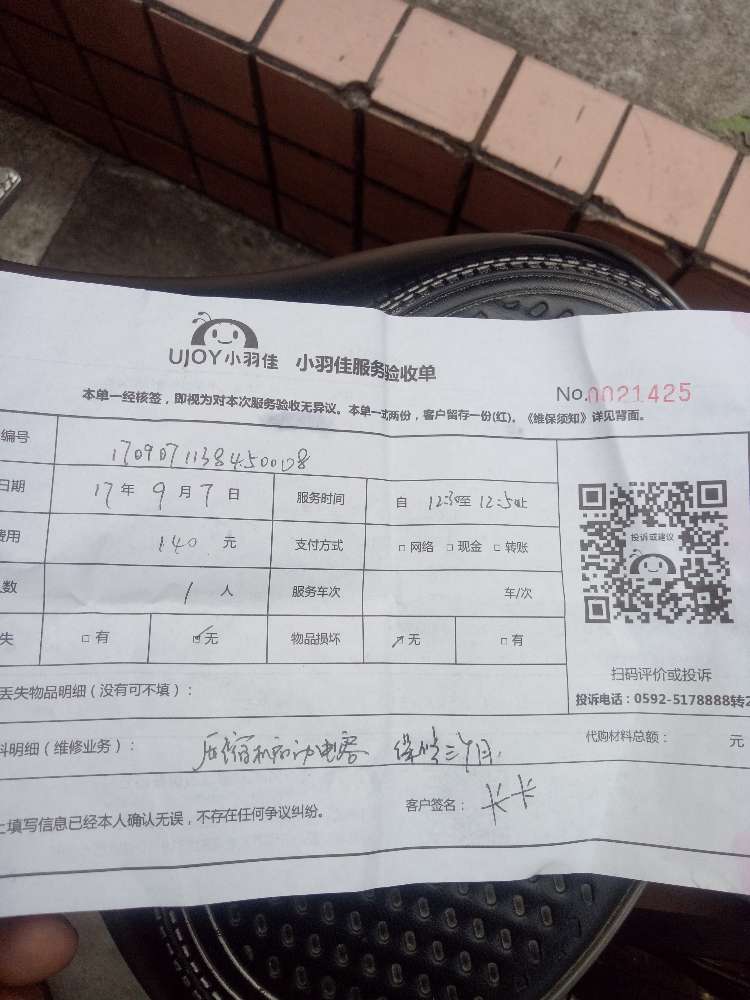 UJOY小羽佳 小羽佳服务验收单
No.0021425
本单一经核签，即视为对本次服务验收无异议。本单一式两份，客户留存一份(红)。《维保须知》详见背面。
编号
日期 17年9月7日 服务时间 自 12:30至 12:50止
费用 140 元 支付方式 □网络 □现金 □转账
数 1 人 服务车次 车/次
失 □有 ☑无 物品损坏 ☑无 □有
投诉或建议
扫码评价或投诉
投诉电话：0592-5178888转2
丢失物品明细（没有可不填）：
料明细（维修业务）： 压缩机启动电容 保修三个月. 代购材料总额： 元
上填写信息已经本人确认无误，不存在任何争议纠纷。 客户签名：